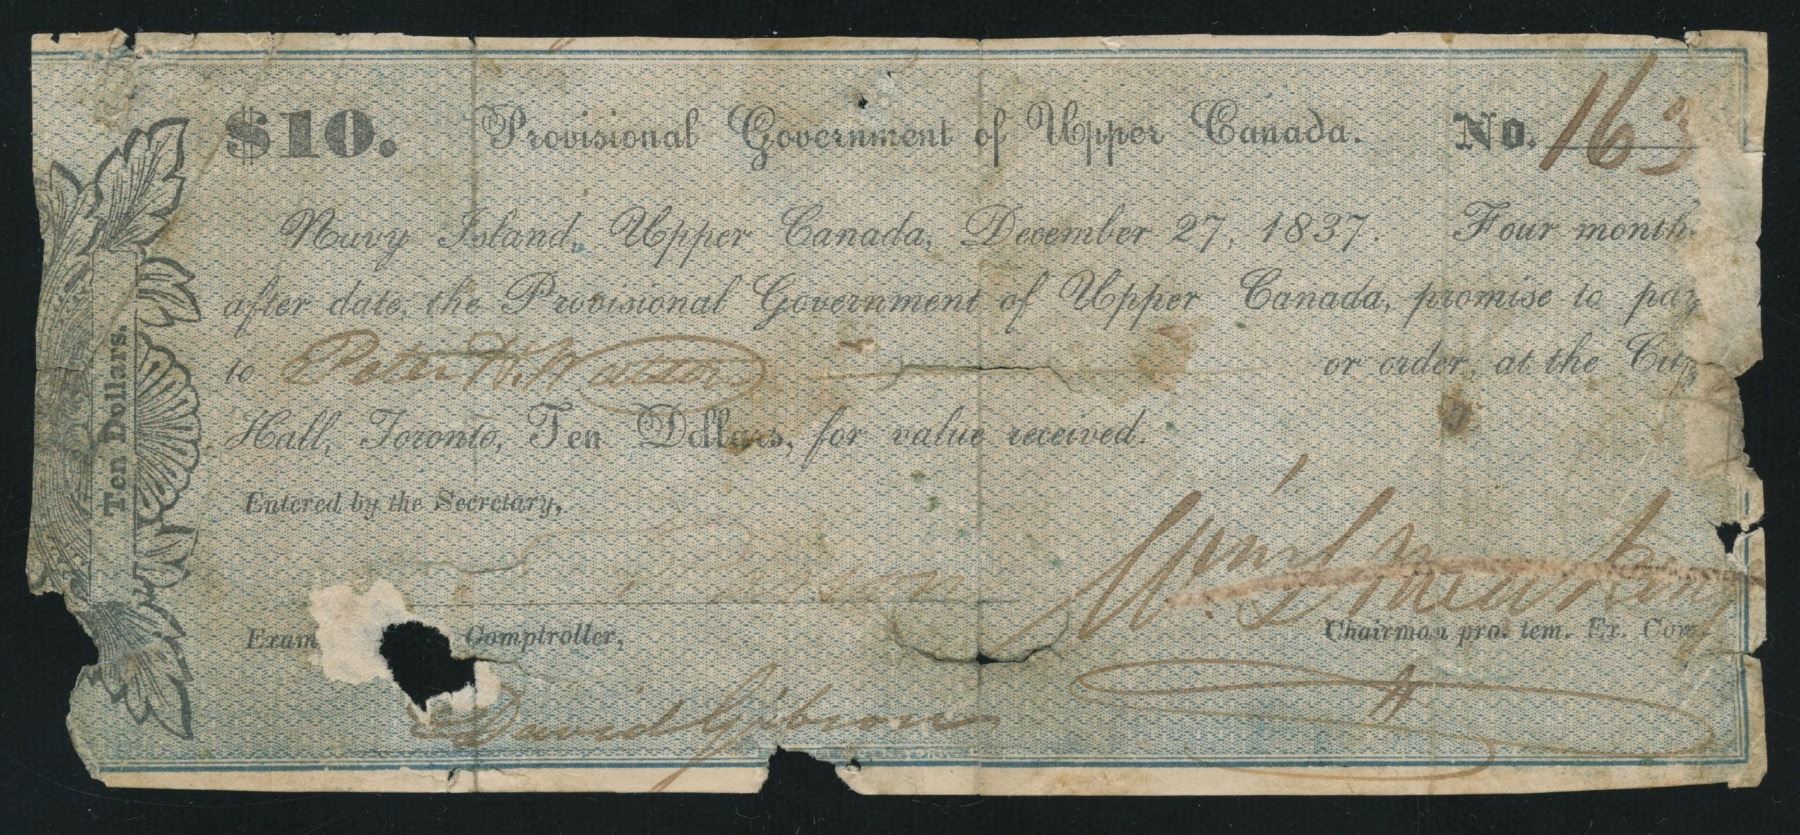 $10. Provisional Government of Upper Canada. No. 163
Navy Island, Upper Canada, December 27, 1837. Four month
after date, the Provisional Government of Upper Canada, promise to pay
to Peter W. Watson or order, at the City
Hall, Toronto, Ten Dollars, for value received.
Ten Dollars.
Entered by the Secretary,
Wm L Mackenzie
Chairman pro. tem. Ex. Com.
Exam Comptroller,
David Gibson